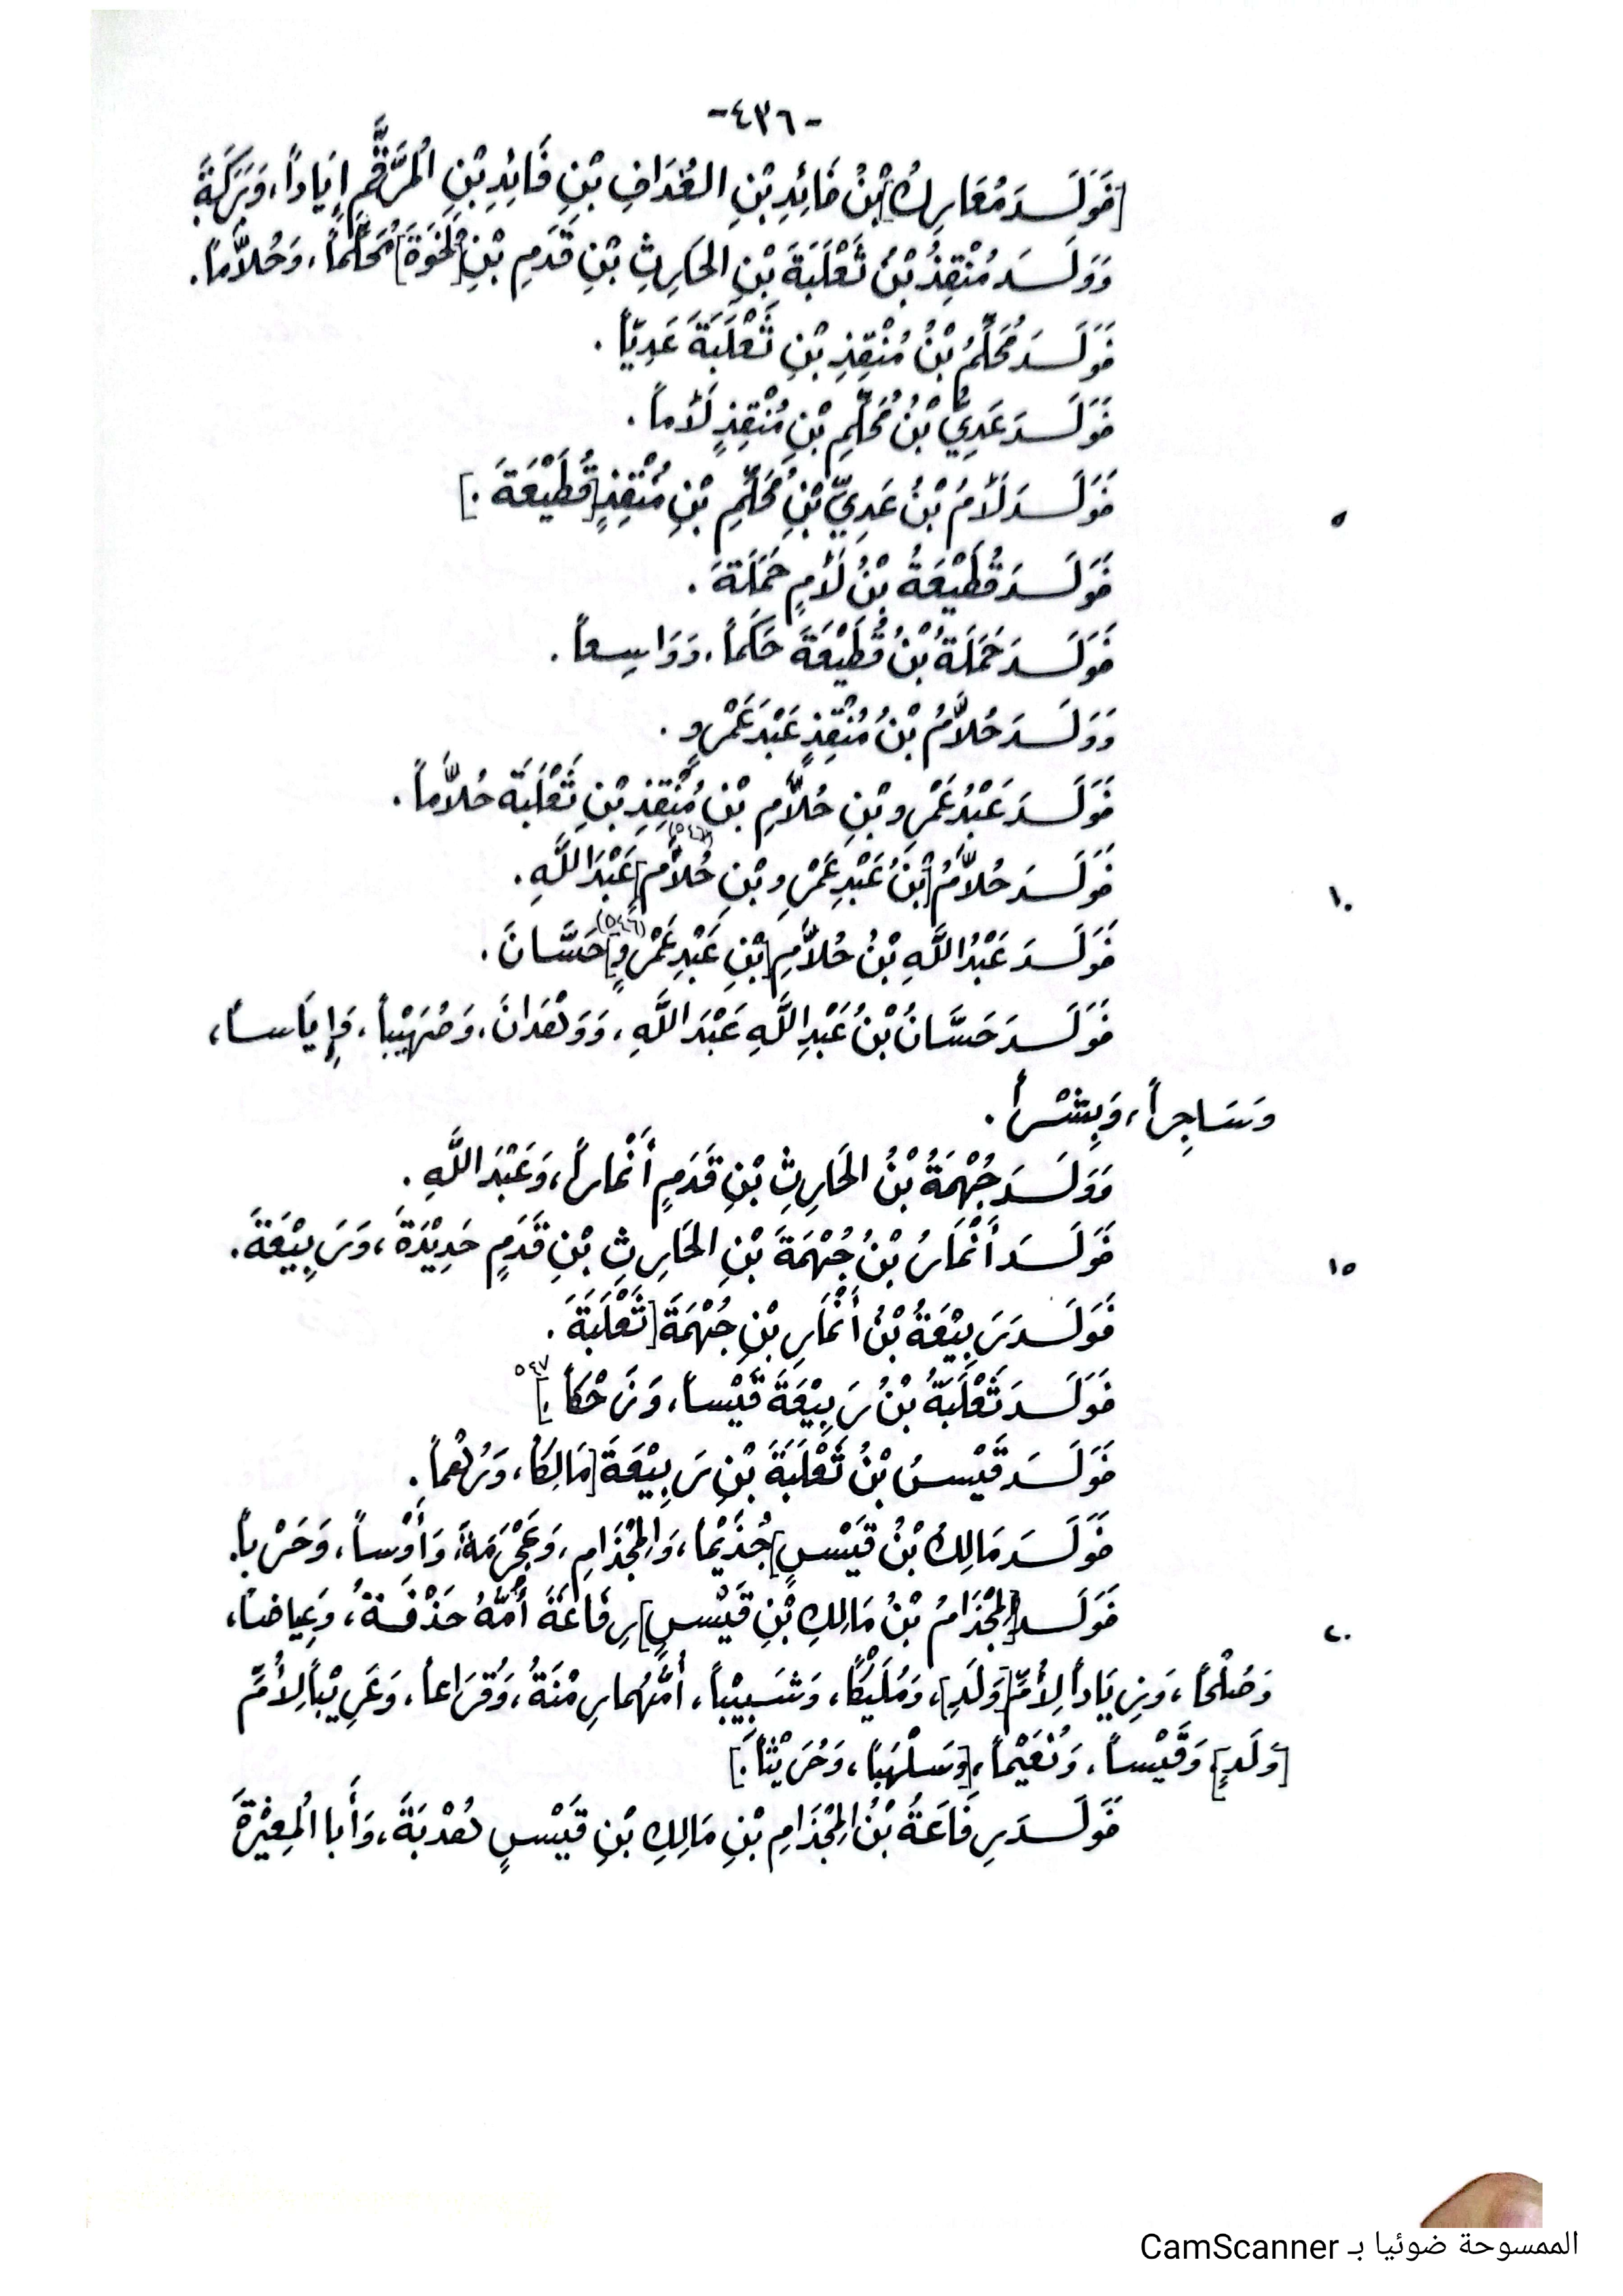 -٤٣٦-
[فَوَلَـدَ مُعَارِكُ] بْنُ فَائِدِ بْنِ الغُدَافِ بْنِ فَائِدِ بْنِ الْمُرَّقَّمِ إِيَاداً، وَبَرَكَةَ
وَوَلَـدَ مُنْقِذُ بْنُ ثَعْلَبَةَ بْنِ الحَارِثِ بْنِ قَدَمِ بْنِ [نَخْوَةَ] مُحَلِّماً، وَحُلاَّماً.
فَوَلَـدَ مُحَلِّمُ بْنُ مُنْقِذِ بْنِ ثَعْلَبَةَ عَدِيّاً.
فَوَلَـدَ عَدِيُّ بْنُ مُحَلِّمِ بْنِ مُنْقِذٍ لَأْماً.
فَوَلَـدَ لَأْمُ بْنُ عَدِيِّ بْنِ مُحَلِّمِ بْنِ مُنْقِذٍ [قُطَيْعَةَ.]
٥
فَوَلَـدَ قُطَيْعَةُ بْنُ لَأْمٍ حَمَلَةَ.
فَوَلَـدَ حَمَلَةُ بْنُ قُطَيْعَةَ حَكَماً، وَوَاسِعاً.
وَوَلَـدَ حُلاَّمُ بْنُ مُنْقِذٍ عَبْدَ عَمْرٍو.
فَوَلَـدَ عَبْدُ عَمْرِو بْنِ حُلاَّمِ بْنِ مُنْقِذِ بْنِ ثَعْلَبَةَ حُلاَّماً.
فَوَلَـدَ حُلاَّمُ [بْنُ عَبْدِ عَمْرِو بْنِ حُلاَّمٍ] (٥٤٦) عَبْدَ اللَّهِ.
١٠
فَوَلَـدَ عَبْدُ اللَّهِ بْنُ حُلاَّمِ [بْنِ عَبْدِ عَمْرٍو] (٥٤٦) حَسَّانَ.
فَوَلَـدَ حَسَّانُ بْنُ عَبْدِ اللَّهِ عَبْدَ اللَّهِ، وَوَهْدَانَ، وَصُهَيْباً، وَإِيَاساً،
وَسَاجِراً، وَبِشْراً.
وَوَلَـدَ جُهْمَةُ بْنُ الحَارِثِ بْنِ قَدَمٍ أَنْمَاراً، وَعَبْدَ اللَّهِ.
فَوَلَـدَ أَنْمَارُ بْنُ جُهْمَةَ بْنِ الحَارِثِ بْنِ قَدَمٍ حَدِيْدَةَ، وَرَبِيْعَةَ.
١٥
فَوَلَـدَ رَبِيْعَةُ بْنُ أَنْمَارِ بْنِ جُهْمَةَ [ثَعْلَبَةَ.
فَوَلَـدَ ثَعْلَبَةُ بْنُ رَبِيْعَةَ قَيْساً، وَزَحْكاً.] ٥٤٧
فَوَلَـدَ قَيْسُ بْنُ ثَعْلَبَةَ بْنِ رَبِيْعَةَ [مَالِكاً، وَرُهْماً.
فَوَلَـدَ مَالِكُ بْنُ قَيْسٍ] جُذَيْماً، وَالمِجْذَامِ، وَعَجْرَمَةَ، وَأَوْساً، وَحَرْباً.
فَوَلَـدَ [المِجْذَامُ بْنُ مَالِكِ بْنِ قَيْسٍ] رِفَاعَةَ أُمُّهُ حَذْفَـةُ، وَعِيَاضاً،
٢٠
وَصُلْحاً، وَزِيَاداً لِأُمِّ [وَلَدٍ]، وَمُلَيْكاً، وَشَبِيْباً، أُمُّهُمَا رِمْنَةُ، وَقُرَاعاً، وَغَرِيْباً لِأُمِّ
[وَلَدٍ] وَقَيْساً، وَنُعَيْماً، [وَسَلْهَباً، وَحُرَيْثاً.]
فَوَلَـدَ رِفَاعَةُ بْنُ المِجْذَامِ بْنِ مَالِكِ بْنِ قَيْسٍ هُدْبَةَ، وَأَبا الْمِغِيْرَةِ
الممسوحة ضوئيا بـ CamScanner